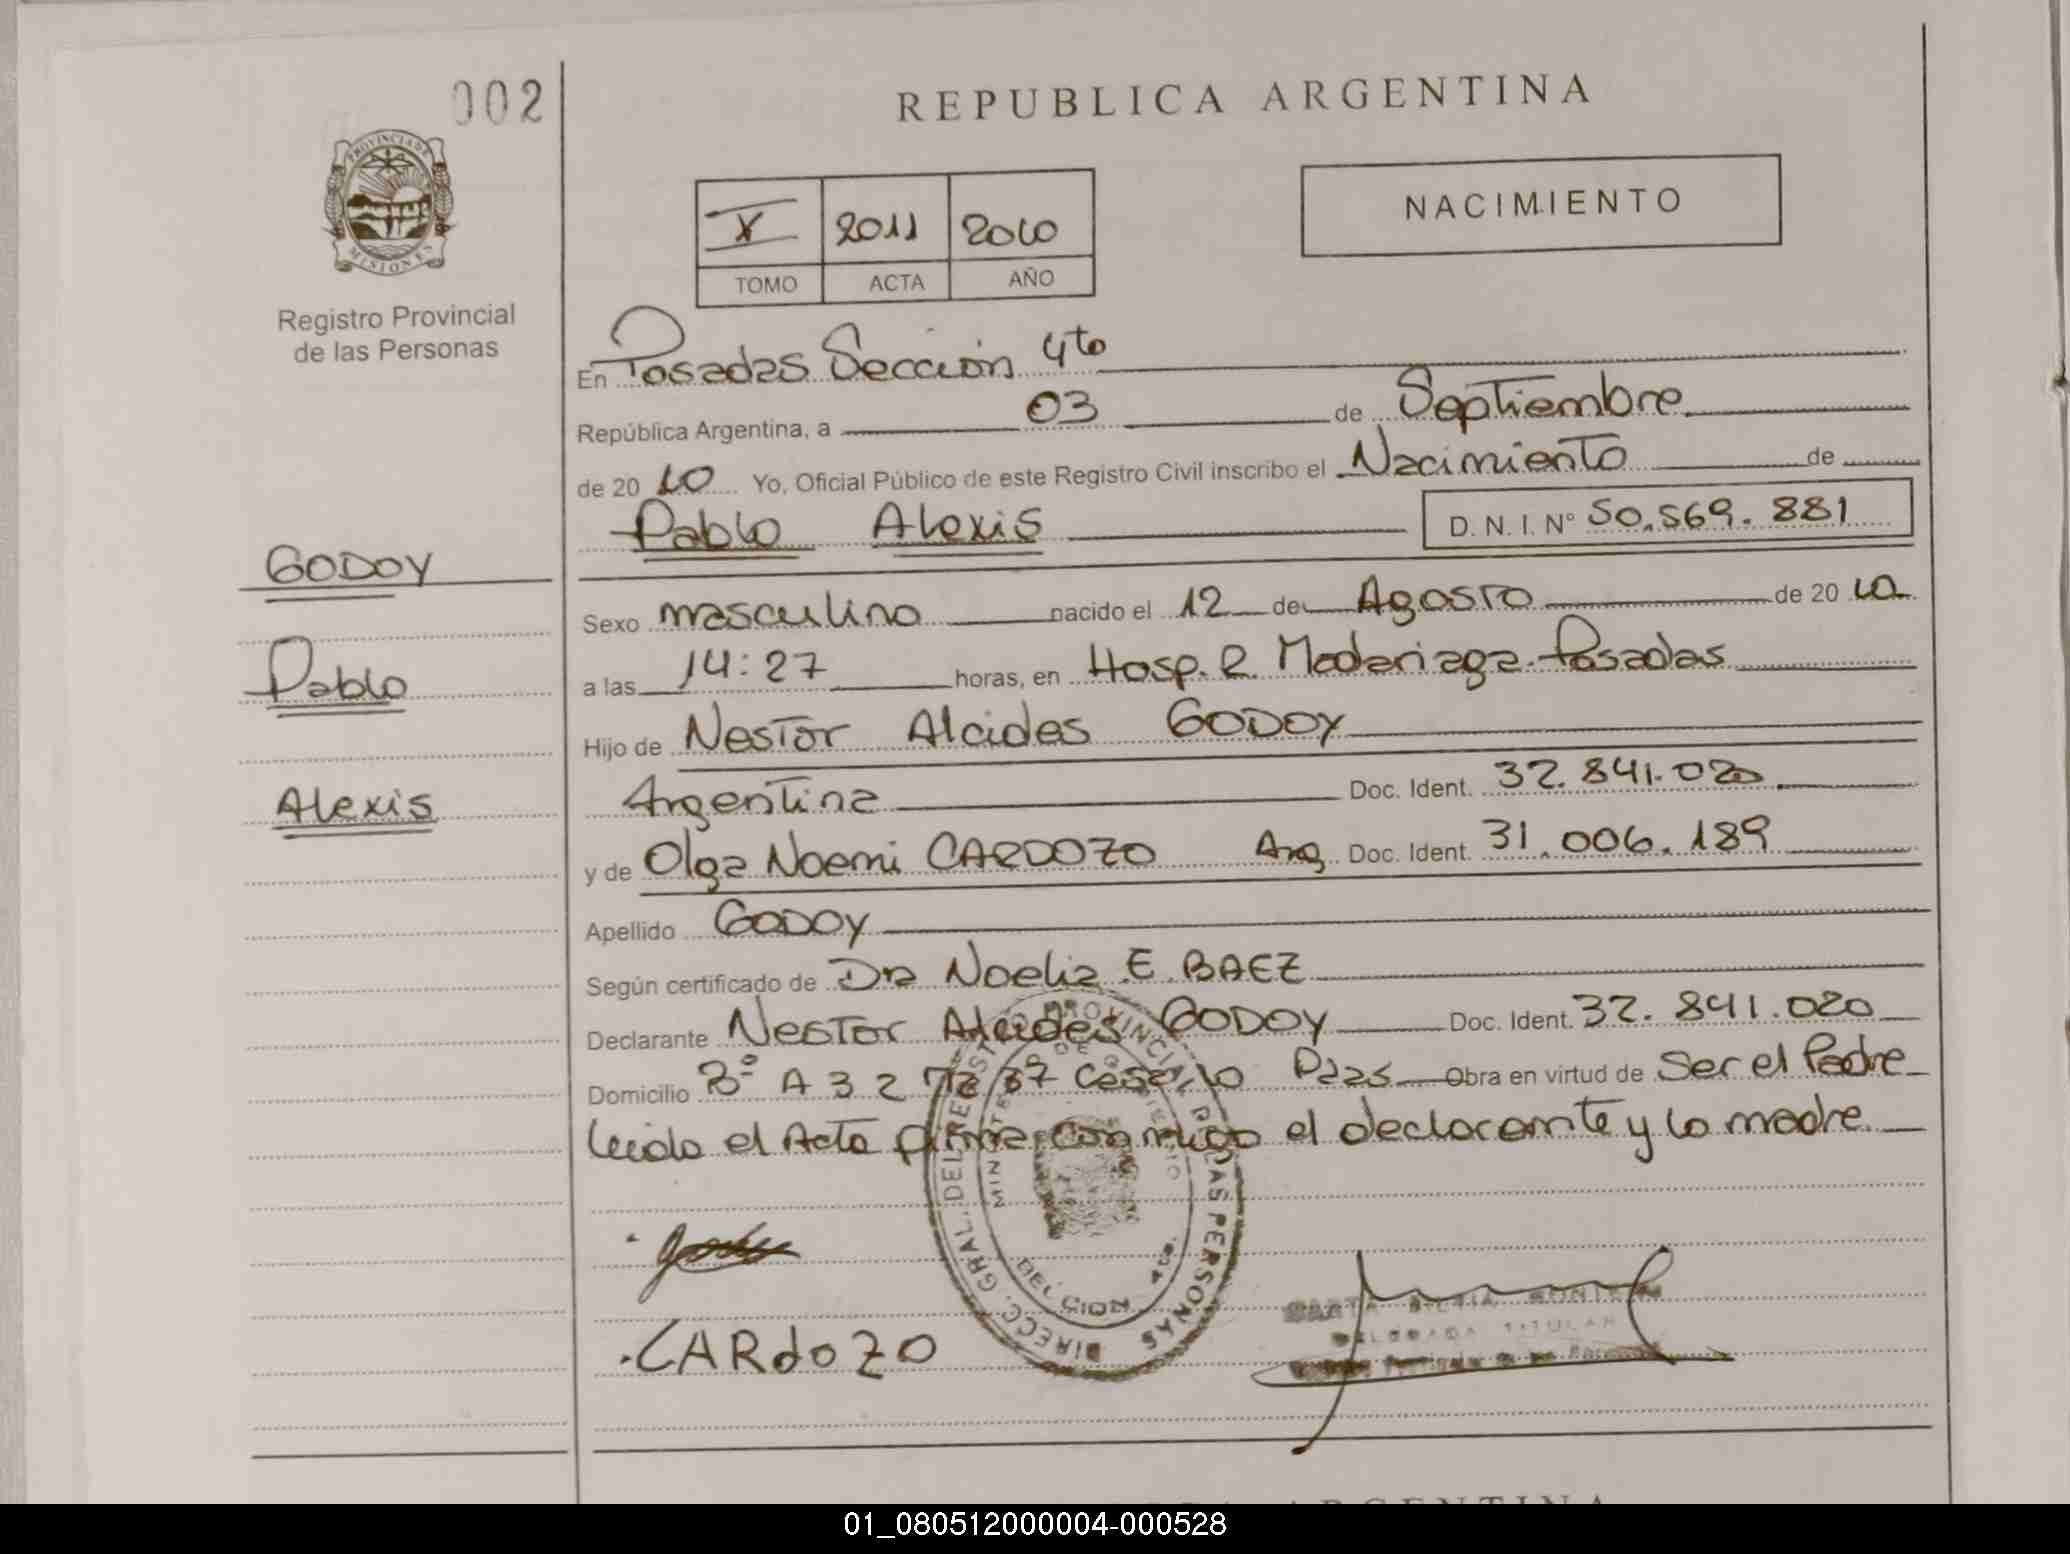 002
REPUBLICA ARGENTINA
PROVINCIA DE MISIONES
Registro Provincial
de las Personas
X 2011 2010
TOMO ACTA AÑO
NACIMIENTO
En Posadas Sección 4to
República Argentina, a 03 de Septiembre
de 20 10 Yo, Oficial Público de este Registro Civil inscribo el Nacimiento de
Pablo Alexis D. N. I. N° 50.569.881
GODOY
Pablo
Alexis
Sexo masculino nacido el 12 de Agosto de 20 10
a las 14:27 horas, en Hosp. R. Madariaga. Posadas
Hijo de Nestor Alcides GODOY
Argentina Doc. Ident. 32.841.020
y de Olga Noemi CARDOZO Arg. Doc. Ident. 31.006.189
Apellido GODOY
Según certificado de Dra Noelia E. BAEZ
Declarante Nestor Alcides GODOY Doc. Ident. 32.841.020
Domicilio A 3 2 37 Pdas Obra en virtud de Ser el Padre
leida el Acta firma conmigo el declarante y la madre
DIRECC. GRAL. DEL REGISTRO PROVINCIAL DE LAS PERSONAS
MINISTERIO DE GOBIERNO
CARDOZO
TITULAR
REPUBLICA ARGENTINA
01_080512000004-000528